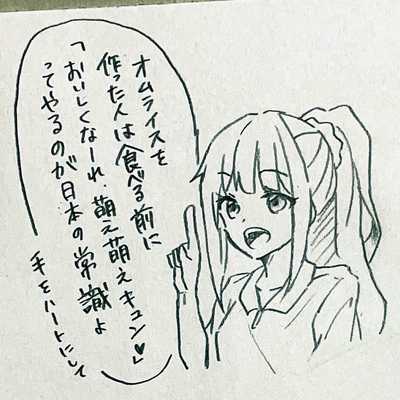 オムライスを
作った人は食べる前に
「おいしくなーれ、萌え萌えキュン♡」
ってやるのが日本の常識よ
手をハートにして